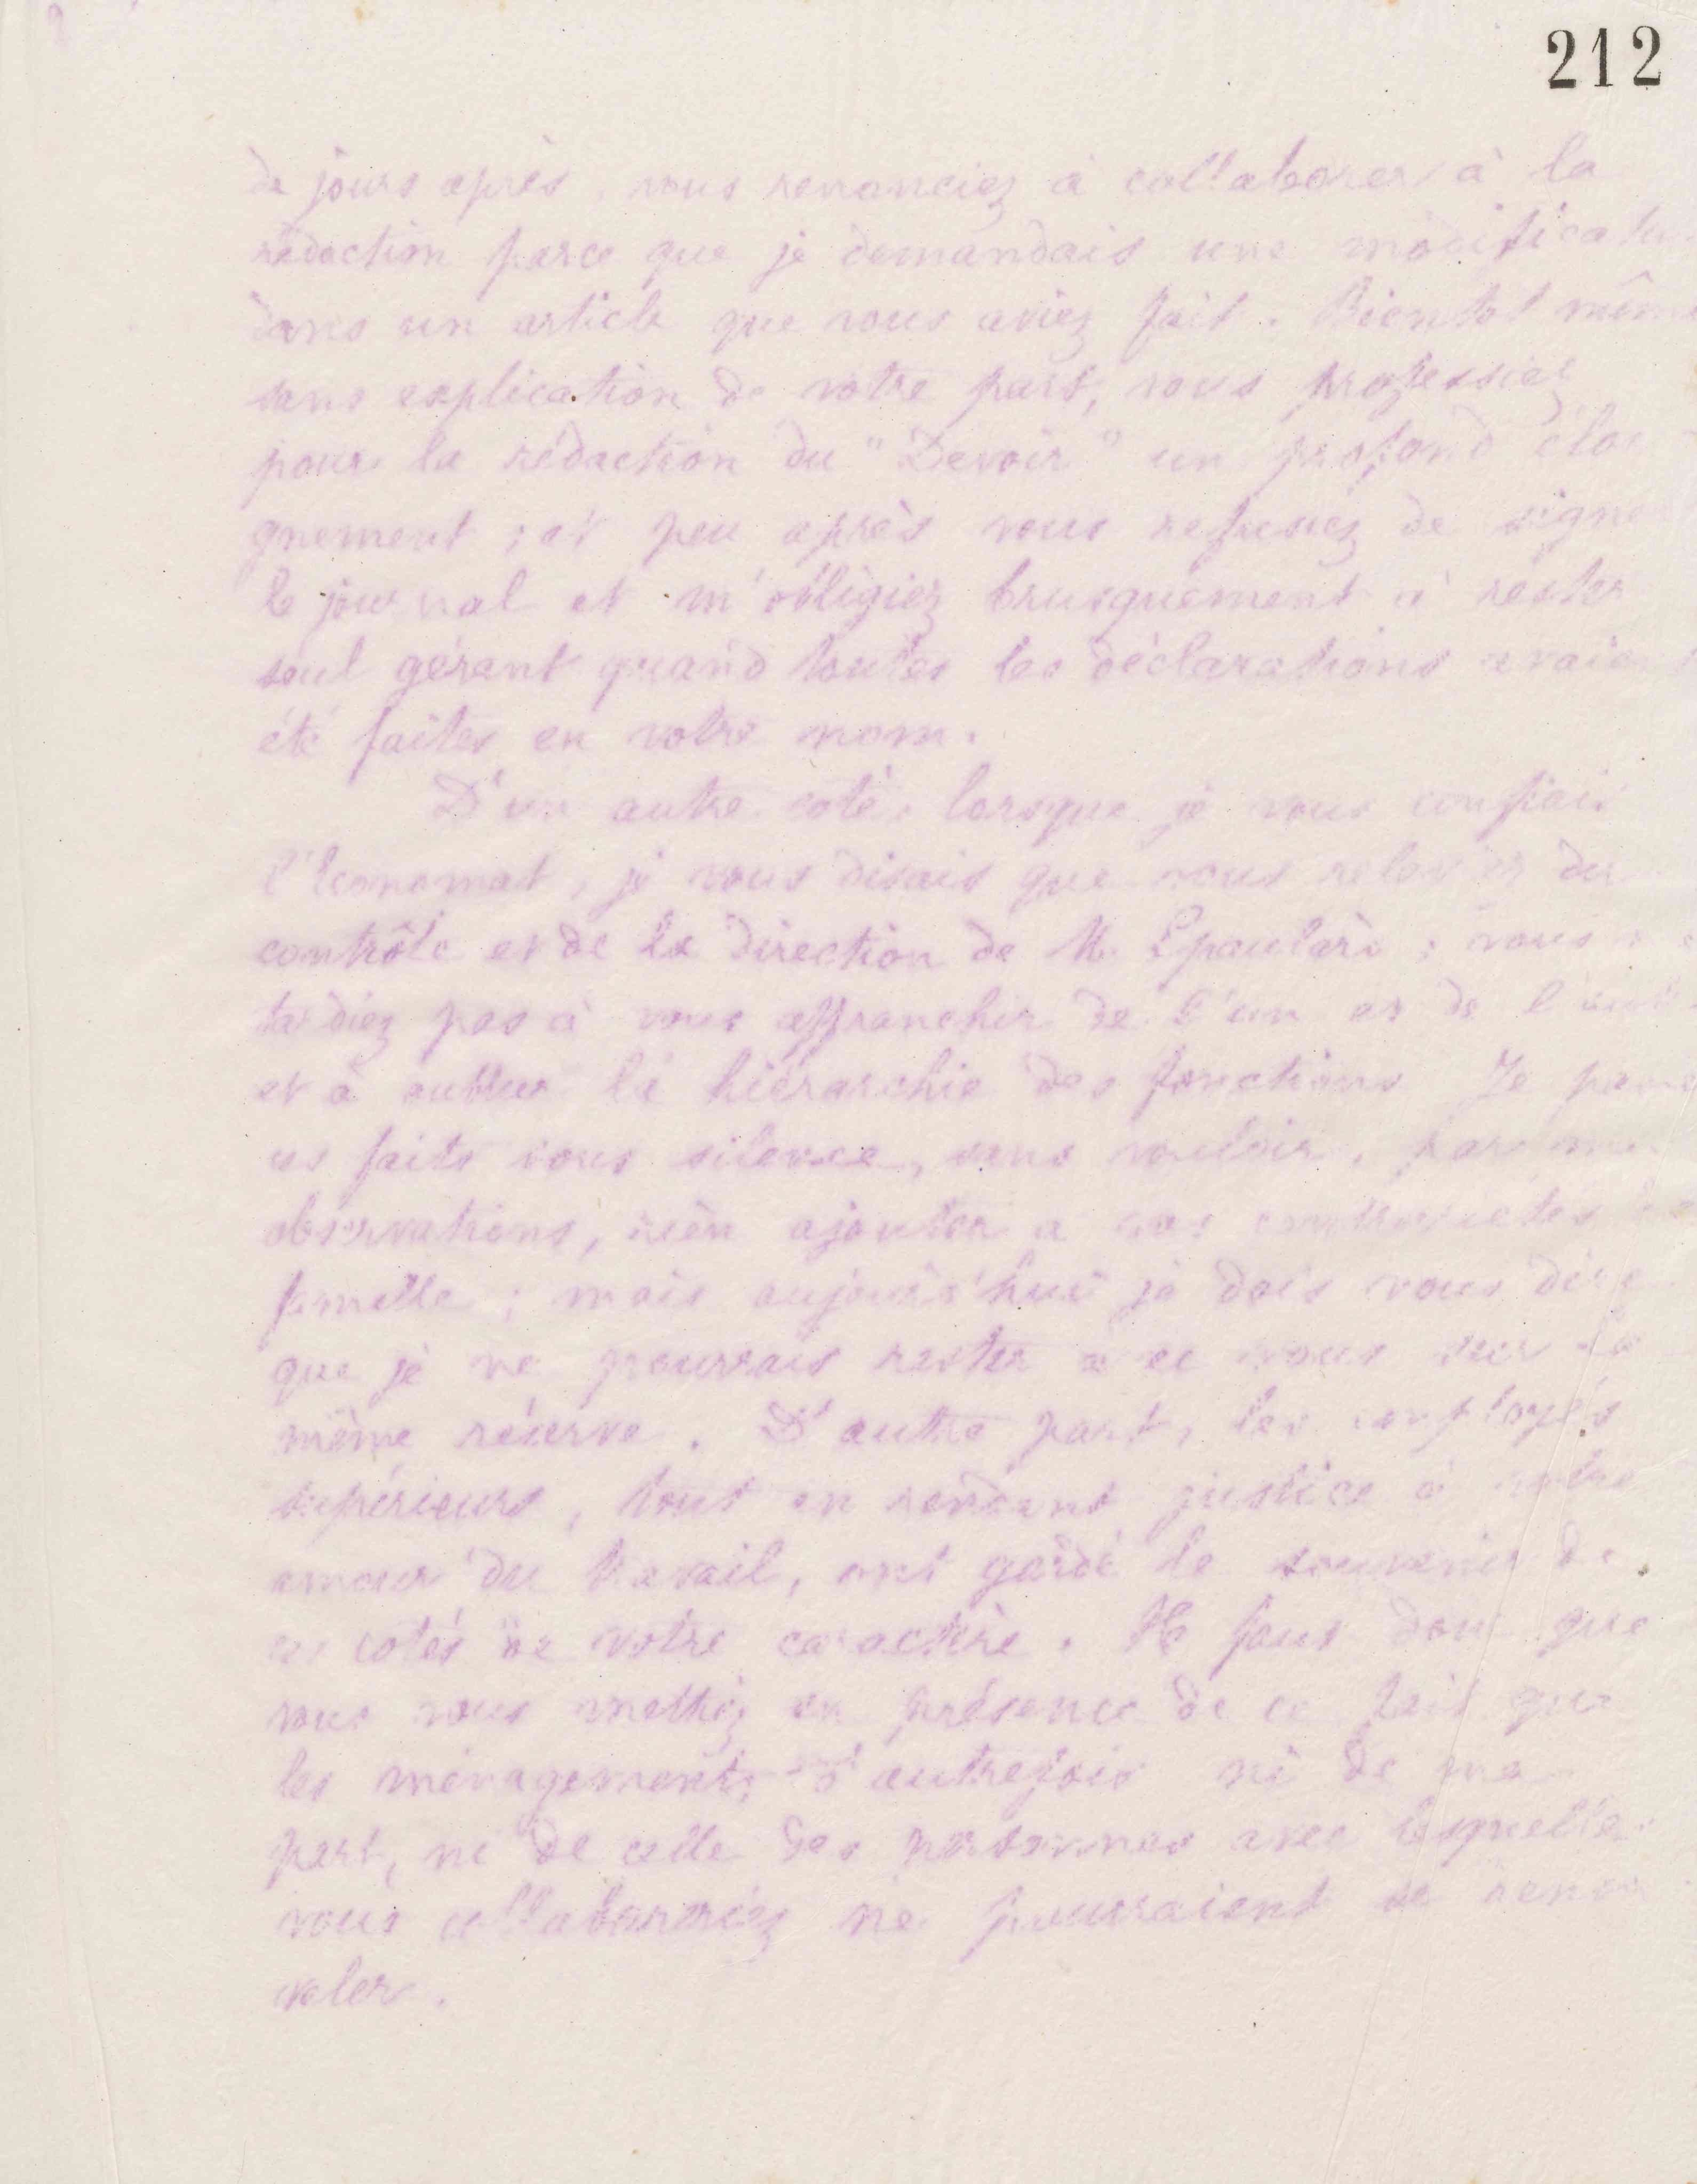 212
de jours après, vous renonciez à collaborer à la
rédaction parce que je demandais une modificat
dans un article que vous aviez fait. Bientôt même
sans explication de votre part, vous professiez
pour la rédaction du "Devoir" un profond éloi
gnement ; et peu après vous refusiez de signer
le journal et m'obligiez brusquement à rester
seul gérant quand toutes les déclarations avaient
été faites en votre nom.
D'un autre coté, lorsque je vous confiais
l'Economat, je vous disais que vous releviez du
contrôle et de la direction de M. Epaulard ; vous
tardiez pas à vous affranchir de l'un et de l'autre
et à oublier la hiérarchie des fonctions Je passe
ces faits sous silence, sans vouloir, par mes
observations, rien ajouter à vos contrariétés de
famille ; mais aujourd'hui je dois vous dire
que je ne pourrais rester avec vous sur la
même réserve. D'autre part, les employés
supérieurs, tout en rendant justice à votre
amour du travail, ont gardé le souvenir de
ces cotés de votre caractère. Il faut donc que
vous vous mettiez en présence de ce fait que
les ménagements d'autrefois ni de ma
part, ni de celle des personnes avec lesquelles
vous collaboreriez ne pourraient se renou
veler.